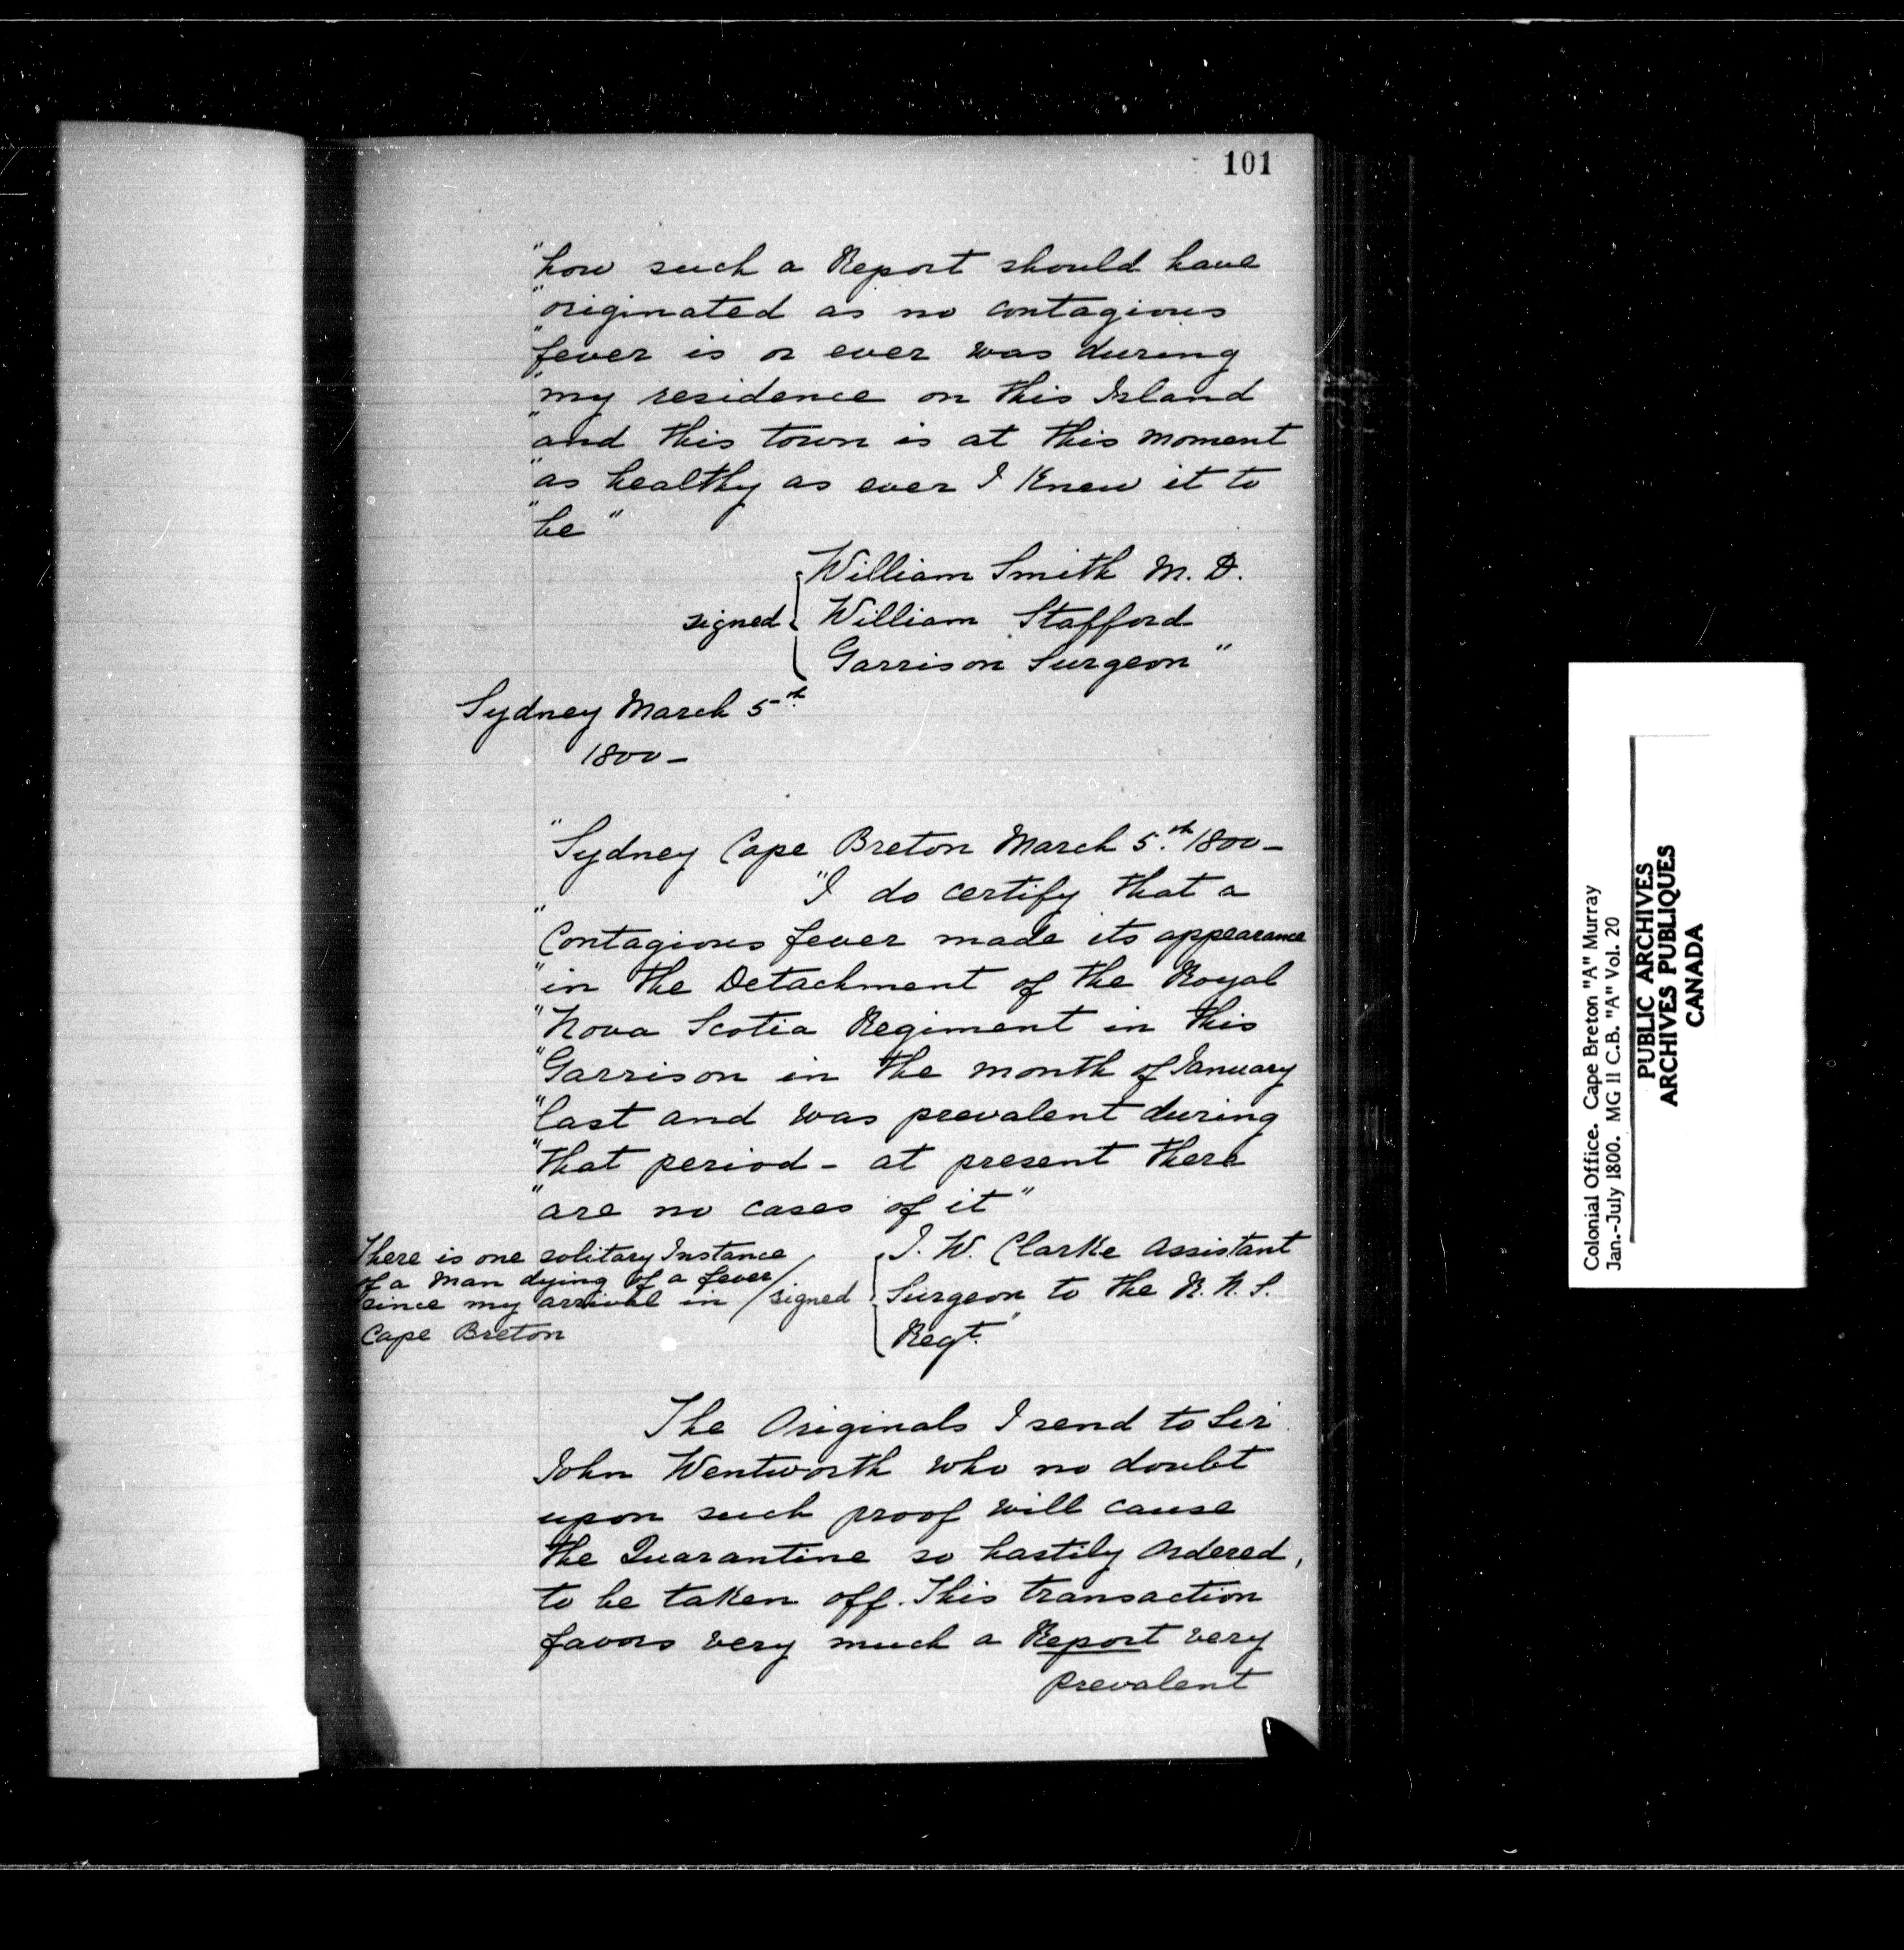 101
"how such a Report should have
"originated as no contagious
"fever is or ever was during
"my residence on this Island
"and this town is at this moment
"as healthy as ever I Knew it to
"be"
William Smith M. D.
signed William Stafford
Garrison Surgeon"
Sydney March 5th
1800 -
"Sydney Cape Breton March 5th. 1800 -
"I do certify that a
"Contagious fever made its appearance
"in the Detachment of the Royal
"Nova Scotia Regiment in this
"Garrison in the month of January
"last and was prevalent during
"that period - at present there
"are no cases of it"
There is one solitary Instance
of a man dying of a fever
since my arrival in
Cape Breton
signed
J. W. Clarke Assistant
Surgeon to the R. N. S.
Regt."
The Originals I send to Sir
John Wentworth who no doubt
upon such proof will cause
the Quarantine so hastily ordered,
to be taken off. This transaction
favors very much a Report very
prevalent
Colonial Office. Cape Breton "A" Murray
Jan.-July 1800. MG 11 C.B. "A" Vol. 20
PUBLIC ARCHIVES
ARCHIVES PUBLIQUES
CANADA